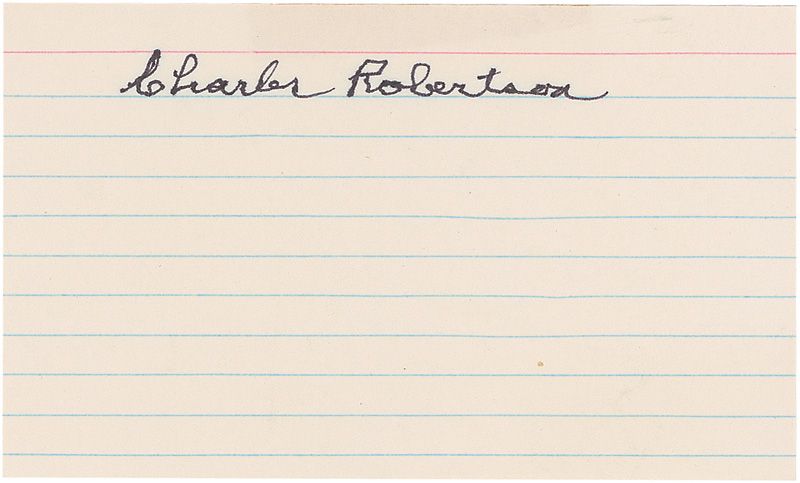 Charles Robertson